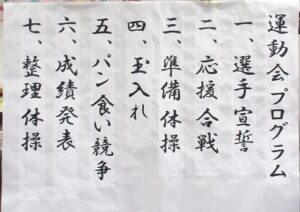 運動会プログラム
一、選手宣誓
二、応援合戦
三、準備体操
四、玉入れ
五、パン食い競争
六、成績発表
七、整理体操